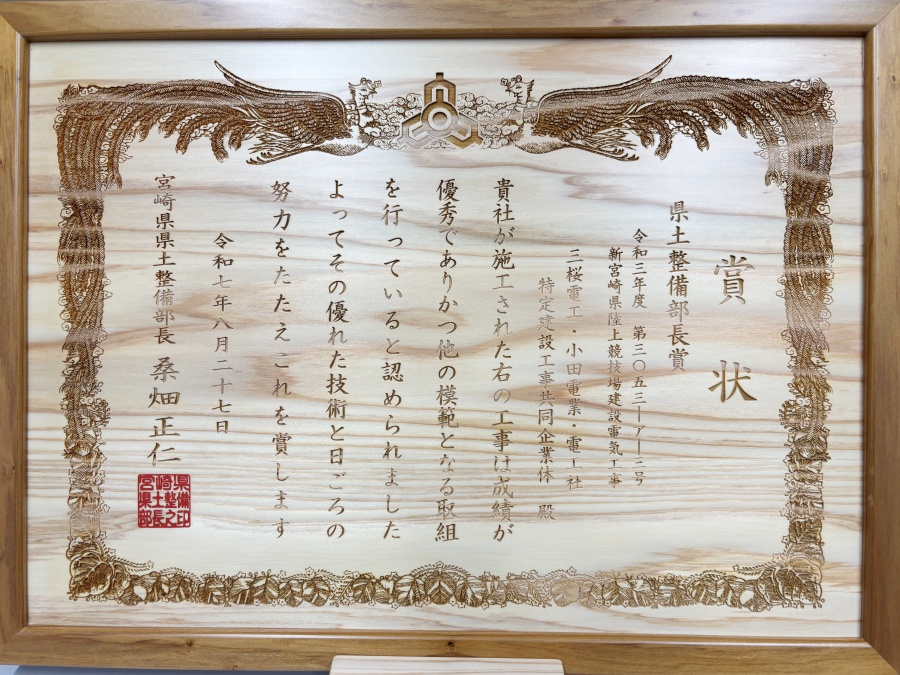 賞状
県土整備部長賞
令和三年度 第三〇五三ーアー三号
新宮崎県陸上競技場建設電気工事
三桜電工・小田電業・電工社
特定建設工事共同企業体 殿
貴社が施工された右の工事は成績が
優秀でありかつ他の模範となる取組
を行っていると認められました
よってその優れた技術と日ごろの
努力をたたえこれを賞します
令和七年八月二十七日
宮崎県県土整備部長 桑畑正仁
宮崎県県土整備部長之印